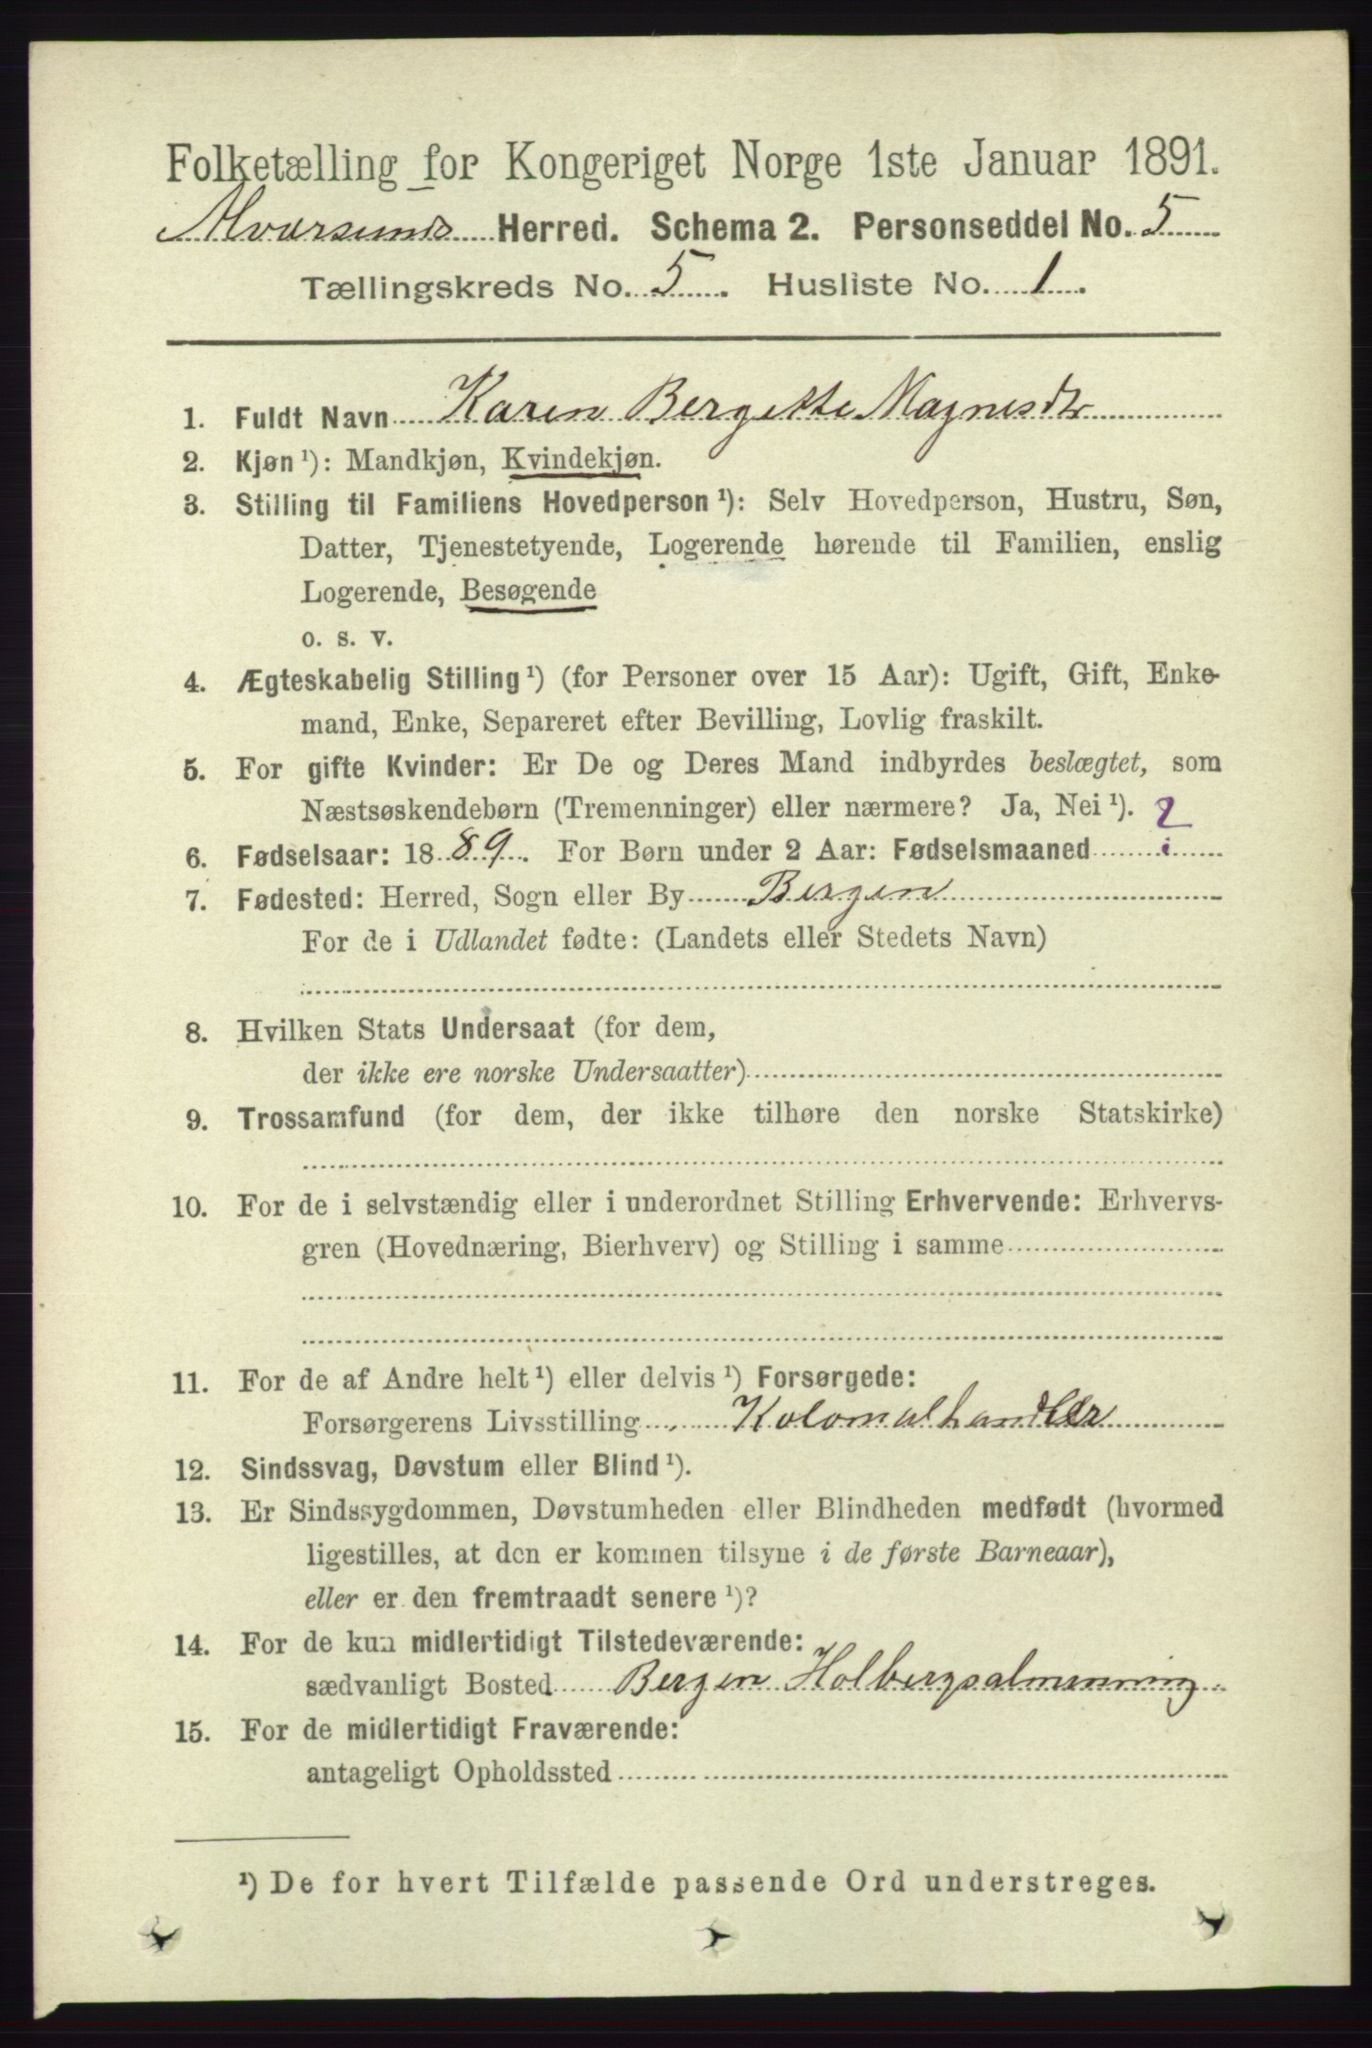 Folketælling for Kongeriget Norge 1ste Januar 1891.
Alversunds Herred. Schema 2. Personseddel No. 5
Tællingskreds No. 5. Husliste No. 1.
1. Fuldt Navn Karen Bergette Magnesdtr
2. Kjøn ¹): Mandkjøn, Kvindekjøn.
3. Stilling til Familiens Hovedperson ¹): Selv Hovedperson, Hustru, Søn,
Datter, Tjenestetyende, Logerende hørende til Familien, enslig
Logerende, Besøgende
o. s. v.
4. Ægteskabelig Stilling ¹) (for Personer over 15 Aar): Ugift, Gift, Enke-
mand, Enke, Separeret efter Bevilling, Lovlig fraskilt.
5. For gifte Kvinder: Er De og Deres Mand indbyrdes beslægtet, som
Næstsøskendebørn (Tremenninger) eller nærmere? Ja, Nei ¹). 2
6. Fødselsaar: 1889. For Børn under 2 Aar: Fødselsmaaned
7. Fødested: Herred, Sogn eller By Bergen
For de i Udlandet fødte: (Landets eller Stedets Navn)
8. Hvilken Stats Undersaat (for dem,
der ikke ere norske Undersaatter)
9. Trossamfund (for dem, der ikke tilhøre den norske Statskirke)
10. For de i selvstændig eller i underordnet Stilling Erhvervende: Erhvervs-
gren (Hovednæring, Bierhverv) og Stilling i samme
11. For de af Andre helt ¹) eller delvis ¹) Forsørgede:
Forsørgerens Livsstilling Kolonialhandler
12. Sindssvag, Døvstum eller Blind ¹).
13. Er Sindssygdommen, Døvstumheden eller Blindheden medfødt (hvormed
ligestilles, at den er kommen tilsyne i de første Barneaar),
eller er den fremtraadt senere ¹)?
14. For de kun midlertidigt Tilstedeværende:
sædvanligt Bosted Bergen Holbergsalmenning
15. For de midlertidigt Fraværende:
antageligt Opholdssted
¹) De for hvert Tilfælde passende Ord understreges.